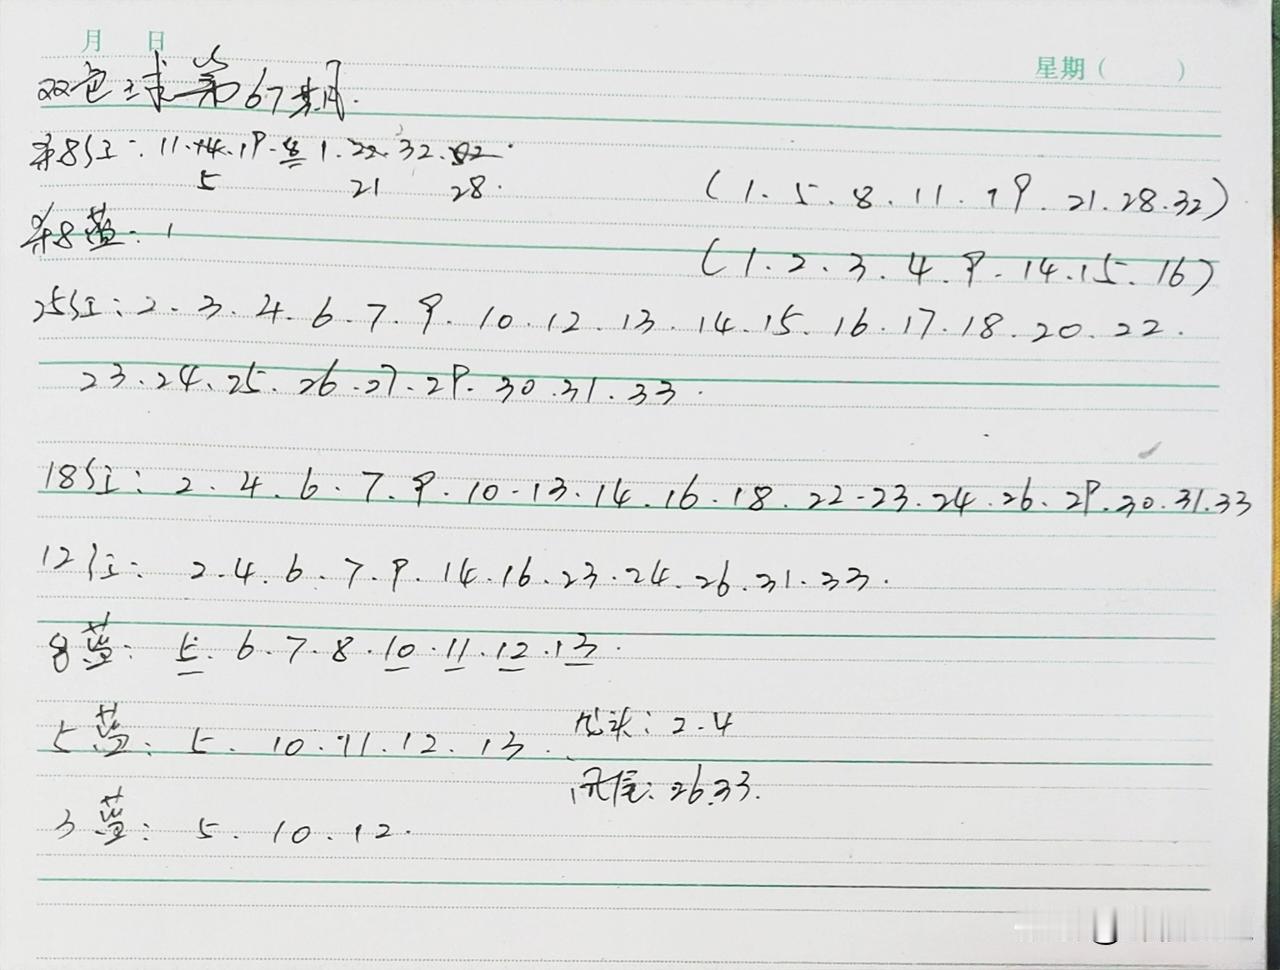 月 日
星期( )
双色球第67期.
杀8红: 11.14.19.8 1.22.32.02.
5 21 28.
(1.5.8.11.19.21.28.32)
杀8蓝: 1
(1.2.3.4.9.14.15.16)
25红: 2.3.4.6.7.9.10.12.13.14.15.16.17.18.20.22.
23.24.25.26.27.29.30.31.33.
18红: 2.4.6.7.9.10.13.14.16.18.22.23.24.26.29.30.31.33
12红: 2.4.6.7.9.14.16.23.24.26.31.33.
8蓝: 5.6.7.8.10.11.12.13.
5蓝: 5.10.11.12.13.
龙头: 2.4
凤尾: 26.33.
3蓝: 5.10.12.